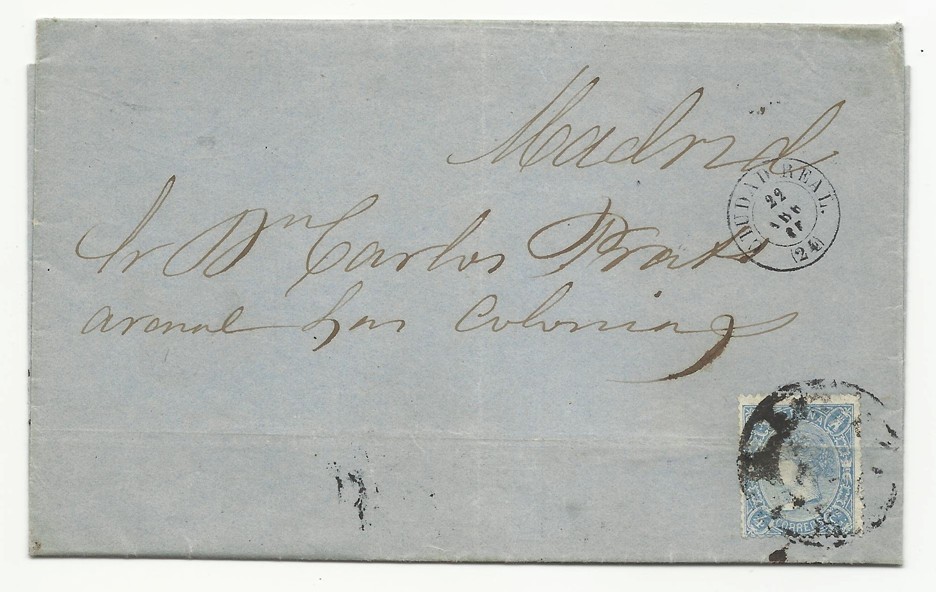 Madrid
CIUDAD REAL.
22
ABR
(24)
Sr Dn Carlos Prats
arenal Las Colonias
CORREOS